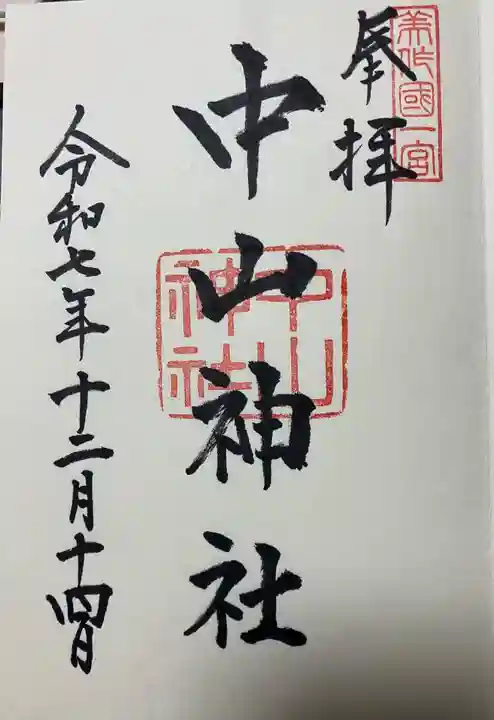 美作國一宮
奉拝
中山神社
中山
神社
令和七年十二月十四日